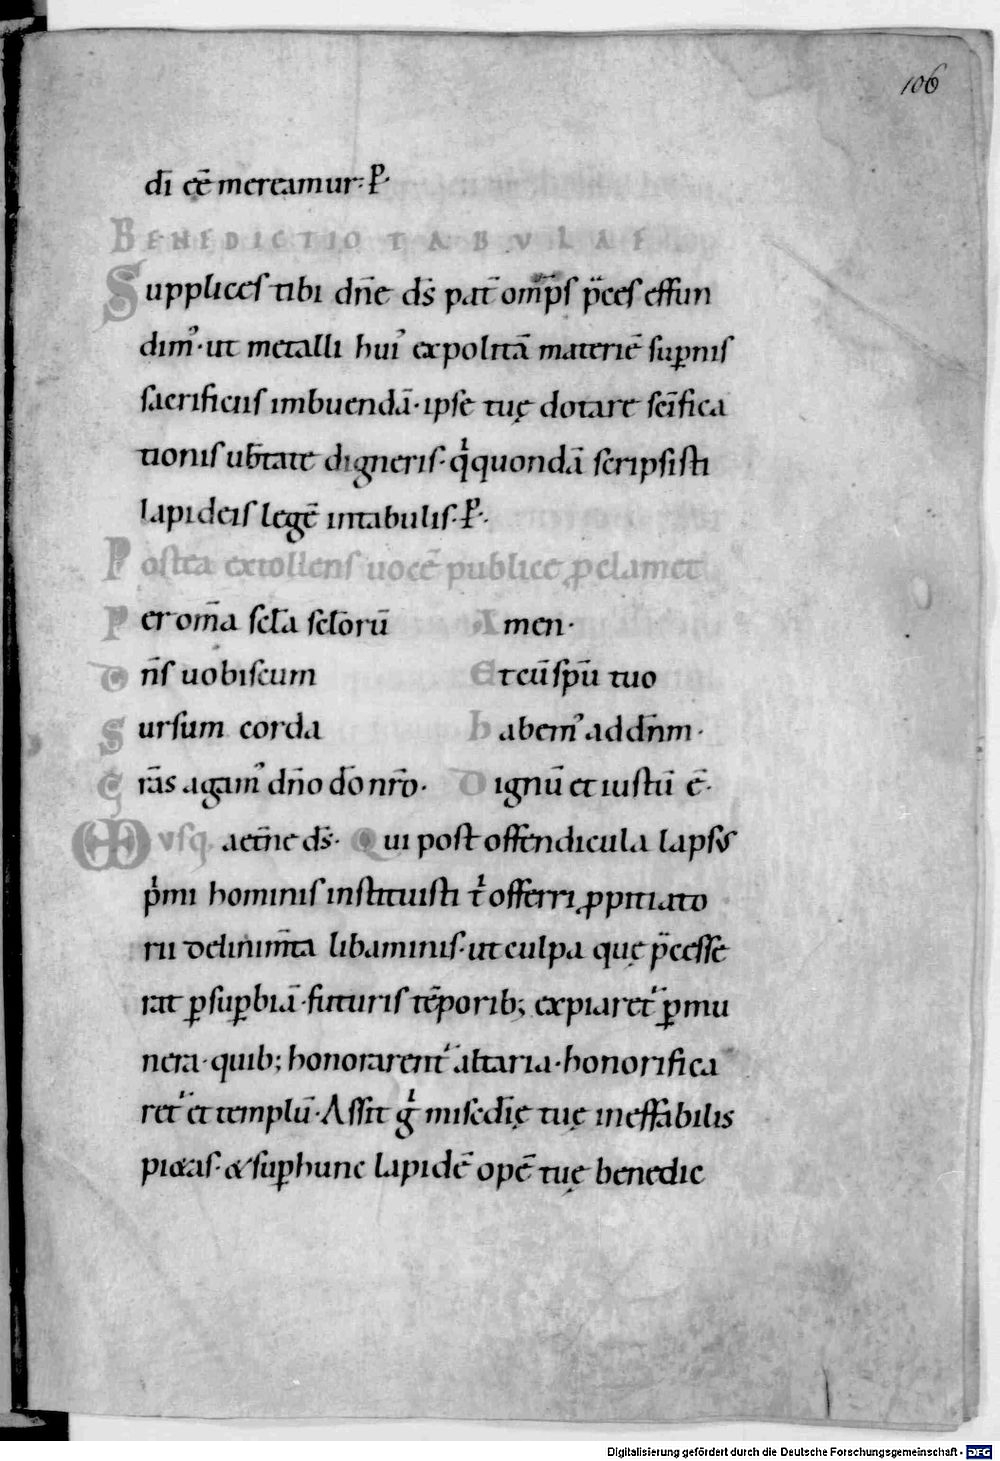 106
dī eē mereamur: P̄.
BENEDICTIO TABULAE
Supplices tibi dn̄e ds̄ pat̄ omp̄s p̄ces effun
dim᾿· ut metalli hui᾿ expolitā materiē sup̱nis
sacrificiis imbuendā· ipse tuę dotare sc̄ifica
tionis ub̄tate digneris· qͥ quondā scripsisti
lapideis legē intabulis· P̄.
Postea extollens uocē publice ꝓclamet
Per om̄a scl̄a scl̄orū Amen·
Dn̄s uobiscum Et cū sp̄u tuo
Sursum corda habem᾿ ad dn̄m·
Grās agam᾿ dn̄o dō nr̄o· Dignū et iustū ē·
VD usq. aet̄ne ds̄· Qui post offendicula lapsus
pͥmi hominis instituisti tͥ offerri ꝓpitiato
rii delinim̄ta libaminis· ut culpa quę p̄cesse
rat ꝑ suꝑbiā· futuris tēporib; expiaret᾿ ꝑ mu
nera· quib; honorarent᾿ altaria· honorifica
ret᾿ et templū· Assit gͥ miscd̄ię tuę ineffabilis
pietas· & suꝑ hunc lapidē opē tuę benedic
Digitalisierung gefördert durch die Deutsche Forschungsgemeinschaft - DFG